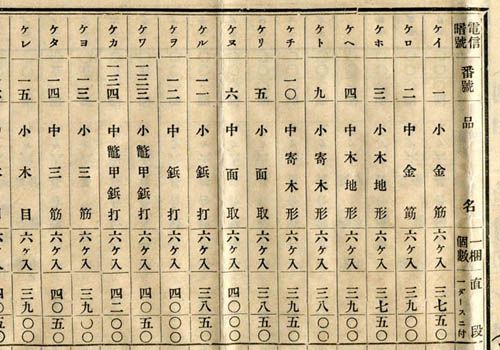 電信暗號 番號 品名 一梱個數 直段 一ダースニ付
ケイ 一 小金筋 六ヶ入 三七五〇
ケロ 二 中金筋 六ヶ入 四〇〇〇
ケホ 三 小木地形 六ヶ入 三七五〇
ケヘ 四 中木地形 六ヶ入 三九〇〇
ケト 九 小寄木形 六ヶ入 三八五〇
ケチ 一〇 中寄木形 六ヶ入 三九〇〇
ケリ 五 小面取 六ヶ入 三八五〇
ケヌ 六 中面取 六ヶ入 四〇〇〇
ケル 一一 小鋲打 六ヶ入 三八五〇
ケヲ 一二 中鋲打 六ヶ入 四〇〇〇
ケワ 一三三 小鼈甲鋲打 六ヶ入 四〇五〇
ケカ 一三四 中鼈甲鋲打 六ヶ入 四二〇〇
ケヨ 一三 小三筋 六ヶ入 三九〇〇
ケタ 一四 中三筋 六ヶ入 四〇五〇
ケレ 一五 小木目 六ヶ入 三九〇〇